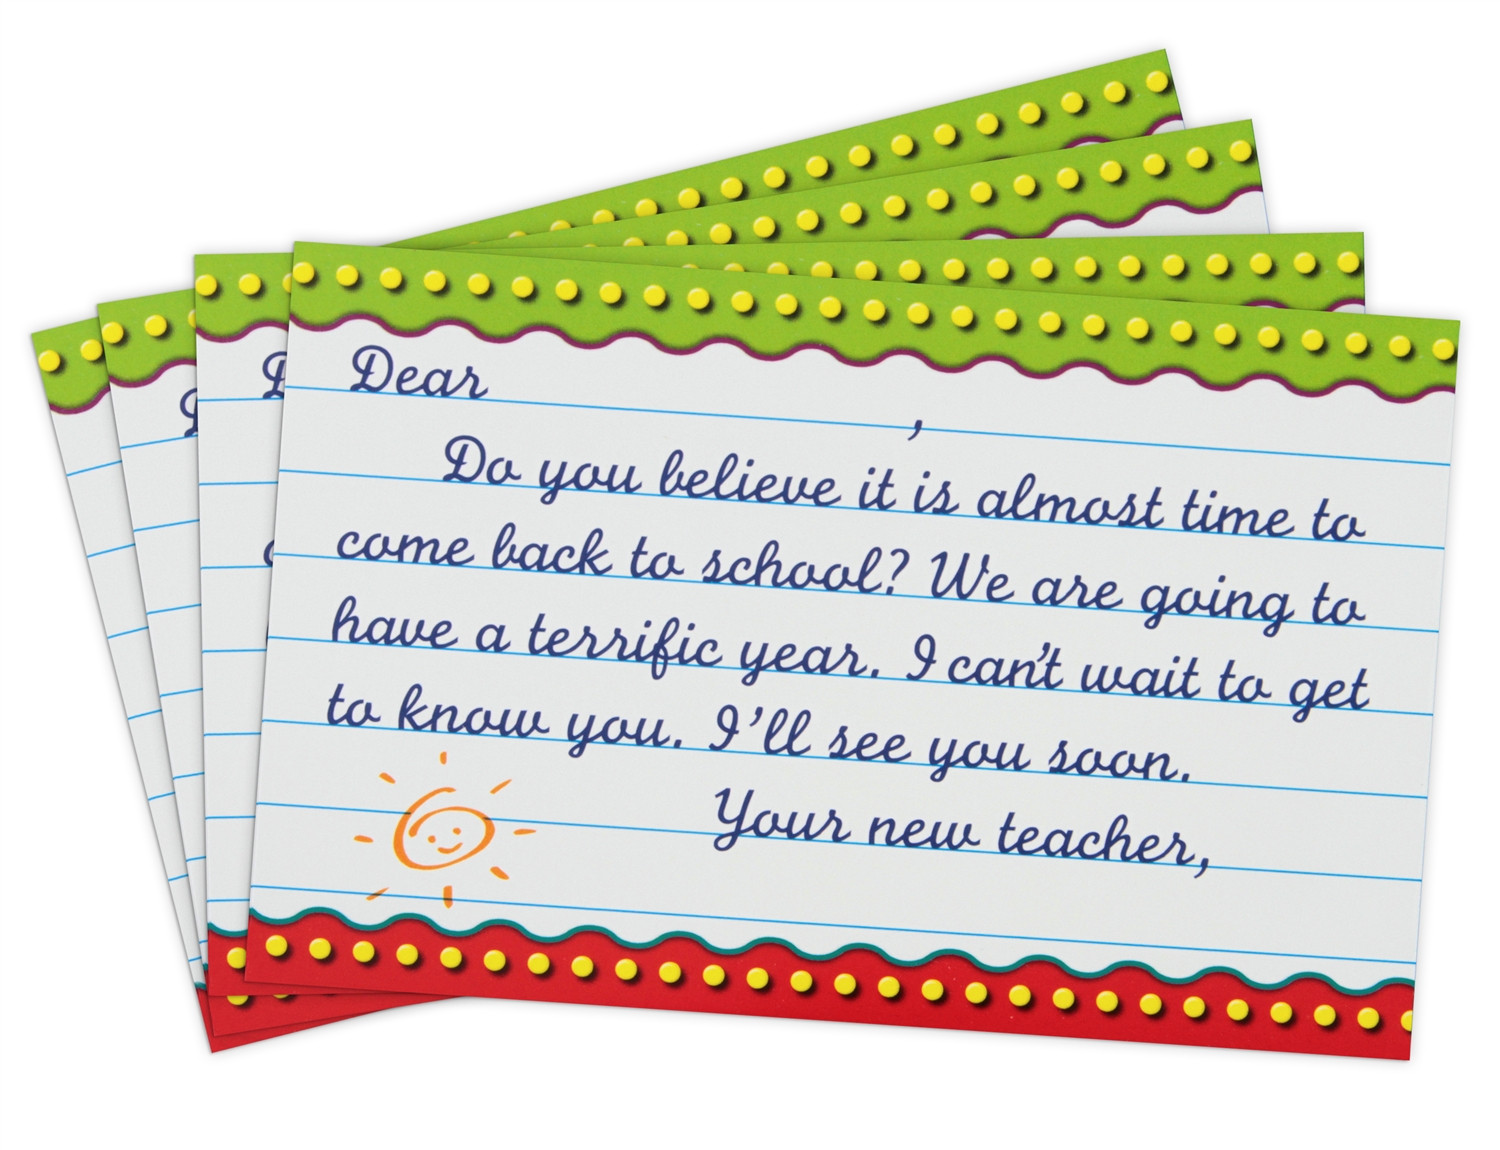 Dear ,
Do you believe it is almost time to
come back to school? We are going to
have a terrific year. I can't wait to get
to know you. I'll see you soon.
Your new teacher,